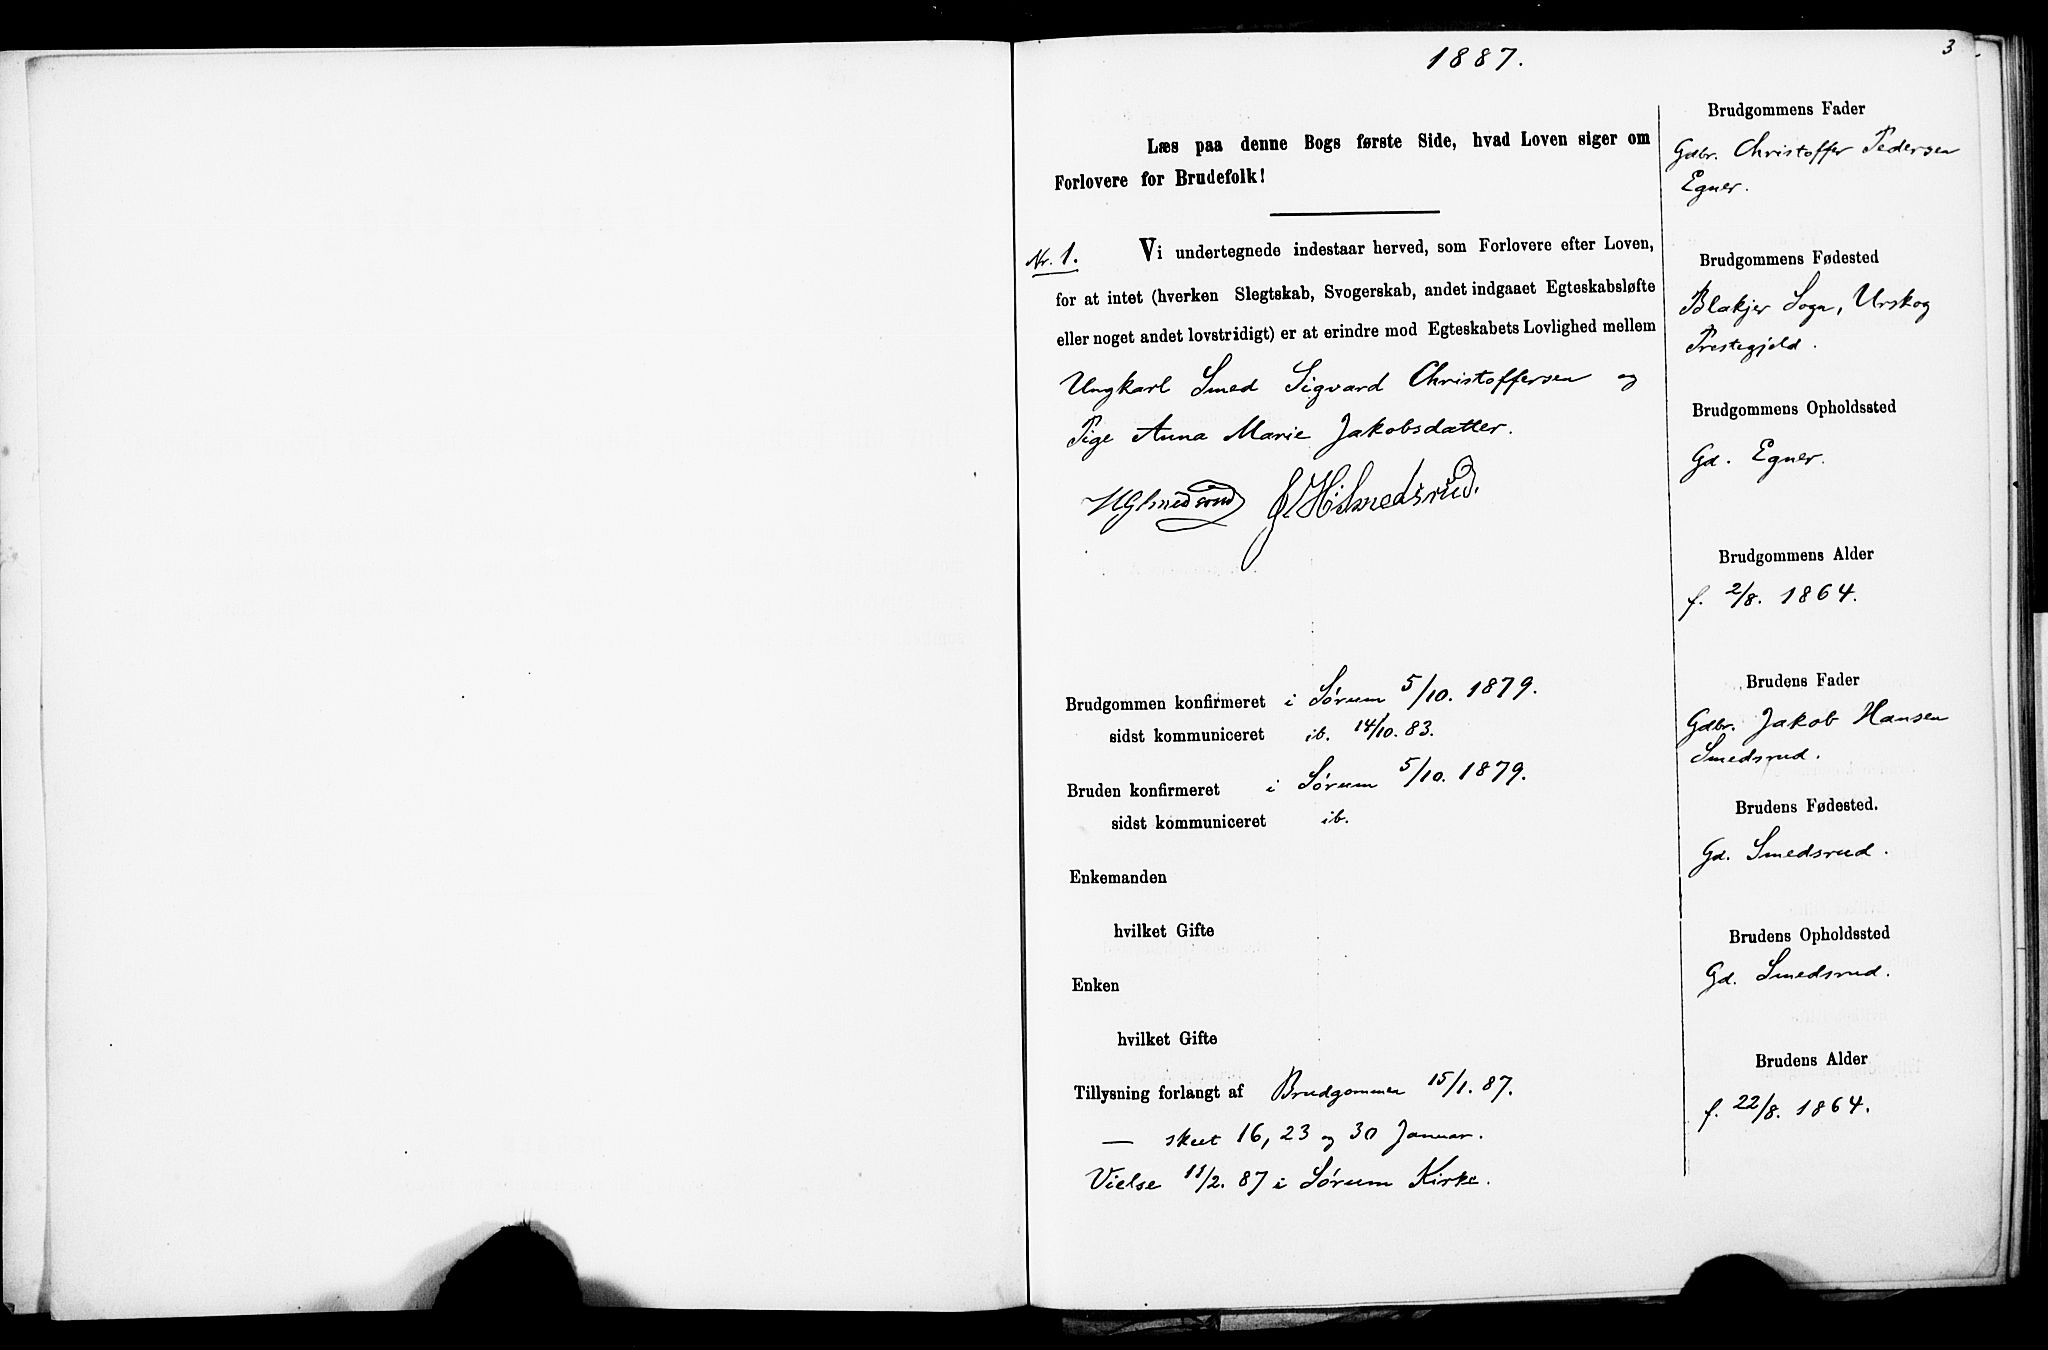 1887.
3
Læs paa denne Bogs første Side, hvad Loven siger om
Forlovere for Brudefolk!
Nr. 1.
Vi undertegnede indestaar herved, som Forlovere efter Loven,
for at intet (hverken Slegtskab, Svogerskab, andet indgaaet Egteskabsløfte
eller noget andet lovstridigt) er at erindre mod Egteskabets Lovlighed mellem
Ungkarl Smed Sigvard Christoffersen og
Pige Anna Marie Jakobsdatter.
Brudgommen konfirmeret i Sørum 5/10. 1879.
sidst kommuniceret ib. 14/10. 83.
Bruden konfirmeret i Sørum 5/10. 1879.
sidst kommuniceret ib.
Enkemanden
hvilket Gifte
Enken
hvilket Gifte
Tillysning forlangt af Brudgommen 15/1. 87.
— skeet 16, 23 og 30 Januar.
Vielse 11/2. 87 i Sørum Kirke.
Brudgommens Fader
Gdbr. Christoffer Pedersen
Egner.
Brudgommens Fødested
Blakjer Sogn, Urskog
Prestegjeld.
Brudgommens Opholdssted
Gd. Egner.
Brudgommens Alder
f. 2/8. 1864.
Brudens Fader
Gdbr. Jakob Hansen
Smedsrud.
Brudens Fødested.
Gd. Smedsrud.
Brudens Opholdssted
Gd. Smedsrud.
Brudens Alder
f. 22/8. 1864.